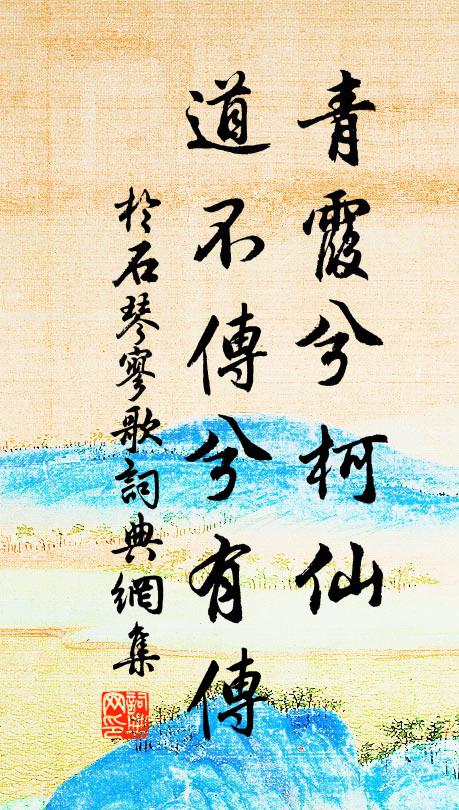 青霞兮柯仙
道不傳兮有傳
於石琴寥歌詞典網集